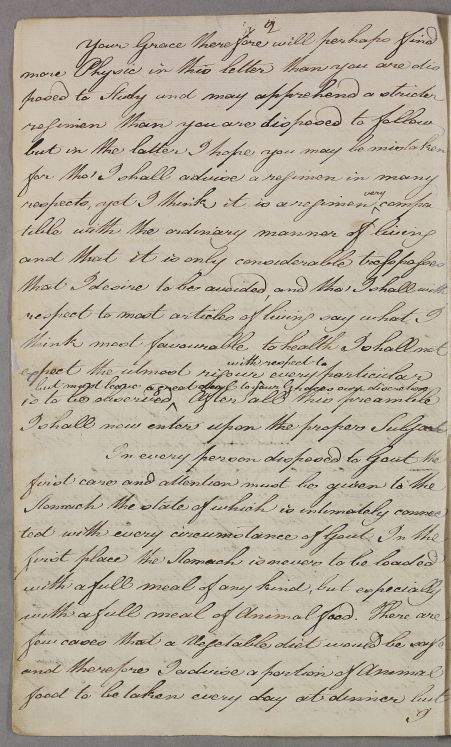 2
Your Grace therefore will perhaps find
more Physic in this letter than you are dis
posed to Study and may apprehend a stricter
regimen than you are disposed to follow
but in the latter I hope you may be mistaken
for tho' I shall advise a regimen in many
respects, yet I think it is a regimen very compa
tible with the ordinary manner of living
and that it is only considerable trespasses
that I desire to be avoided, and tho' I shall with
respect to most articles of living say what I
think most favourable to health I shall not
expect the utmost rigour every particular
with respect to
but must leave a great deal to your Graces own discretion
is to be observed. After all this preamble
I shall now enter upon the proper Subject
In every person disposed to Gout the
first care and attention must be given to the
Stomach the state of which is intimately connec
ted with every circumstance of Gout. In the
first place the Stomach is never to be loaded
with a full meal of any kind, but especially
with a full meal of Animal food. There are
few cases that a Vegetable diet would be safe
and therefore I advise a portion of Animal
food to be taken every day at dinner but